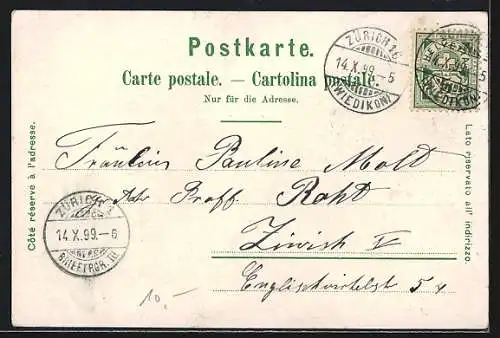 Postkarte.
Carte postale. — Cartolina postale.
Nur für die Adresse.
Côté réservé à l'adresse.
Lato riservato all' indirizzo.
ZÜRICH 16
14.X.99.-5
(WIEDIKON)
HELVETIA
(WIEDIKON)
Fräulein Pauline Molt
Adr Proff. Roht
Zürich V
Englischviertelst 54
ZÜRICH 1
14.X.99.-6
BRIEFTRGR. III
10.-